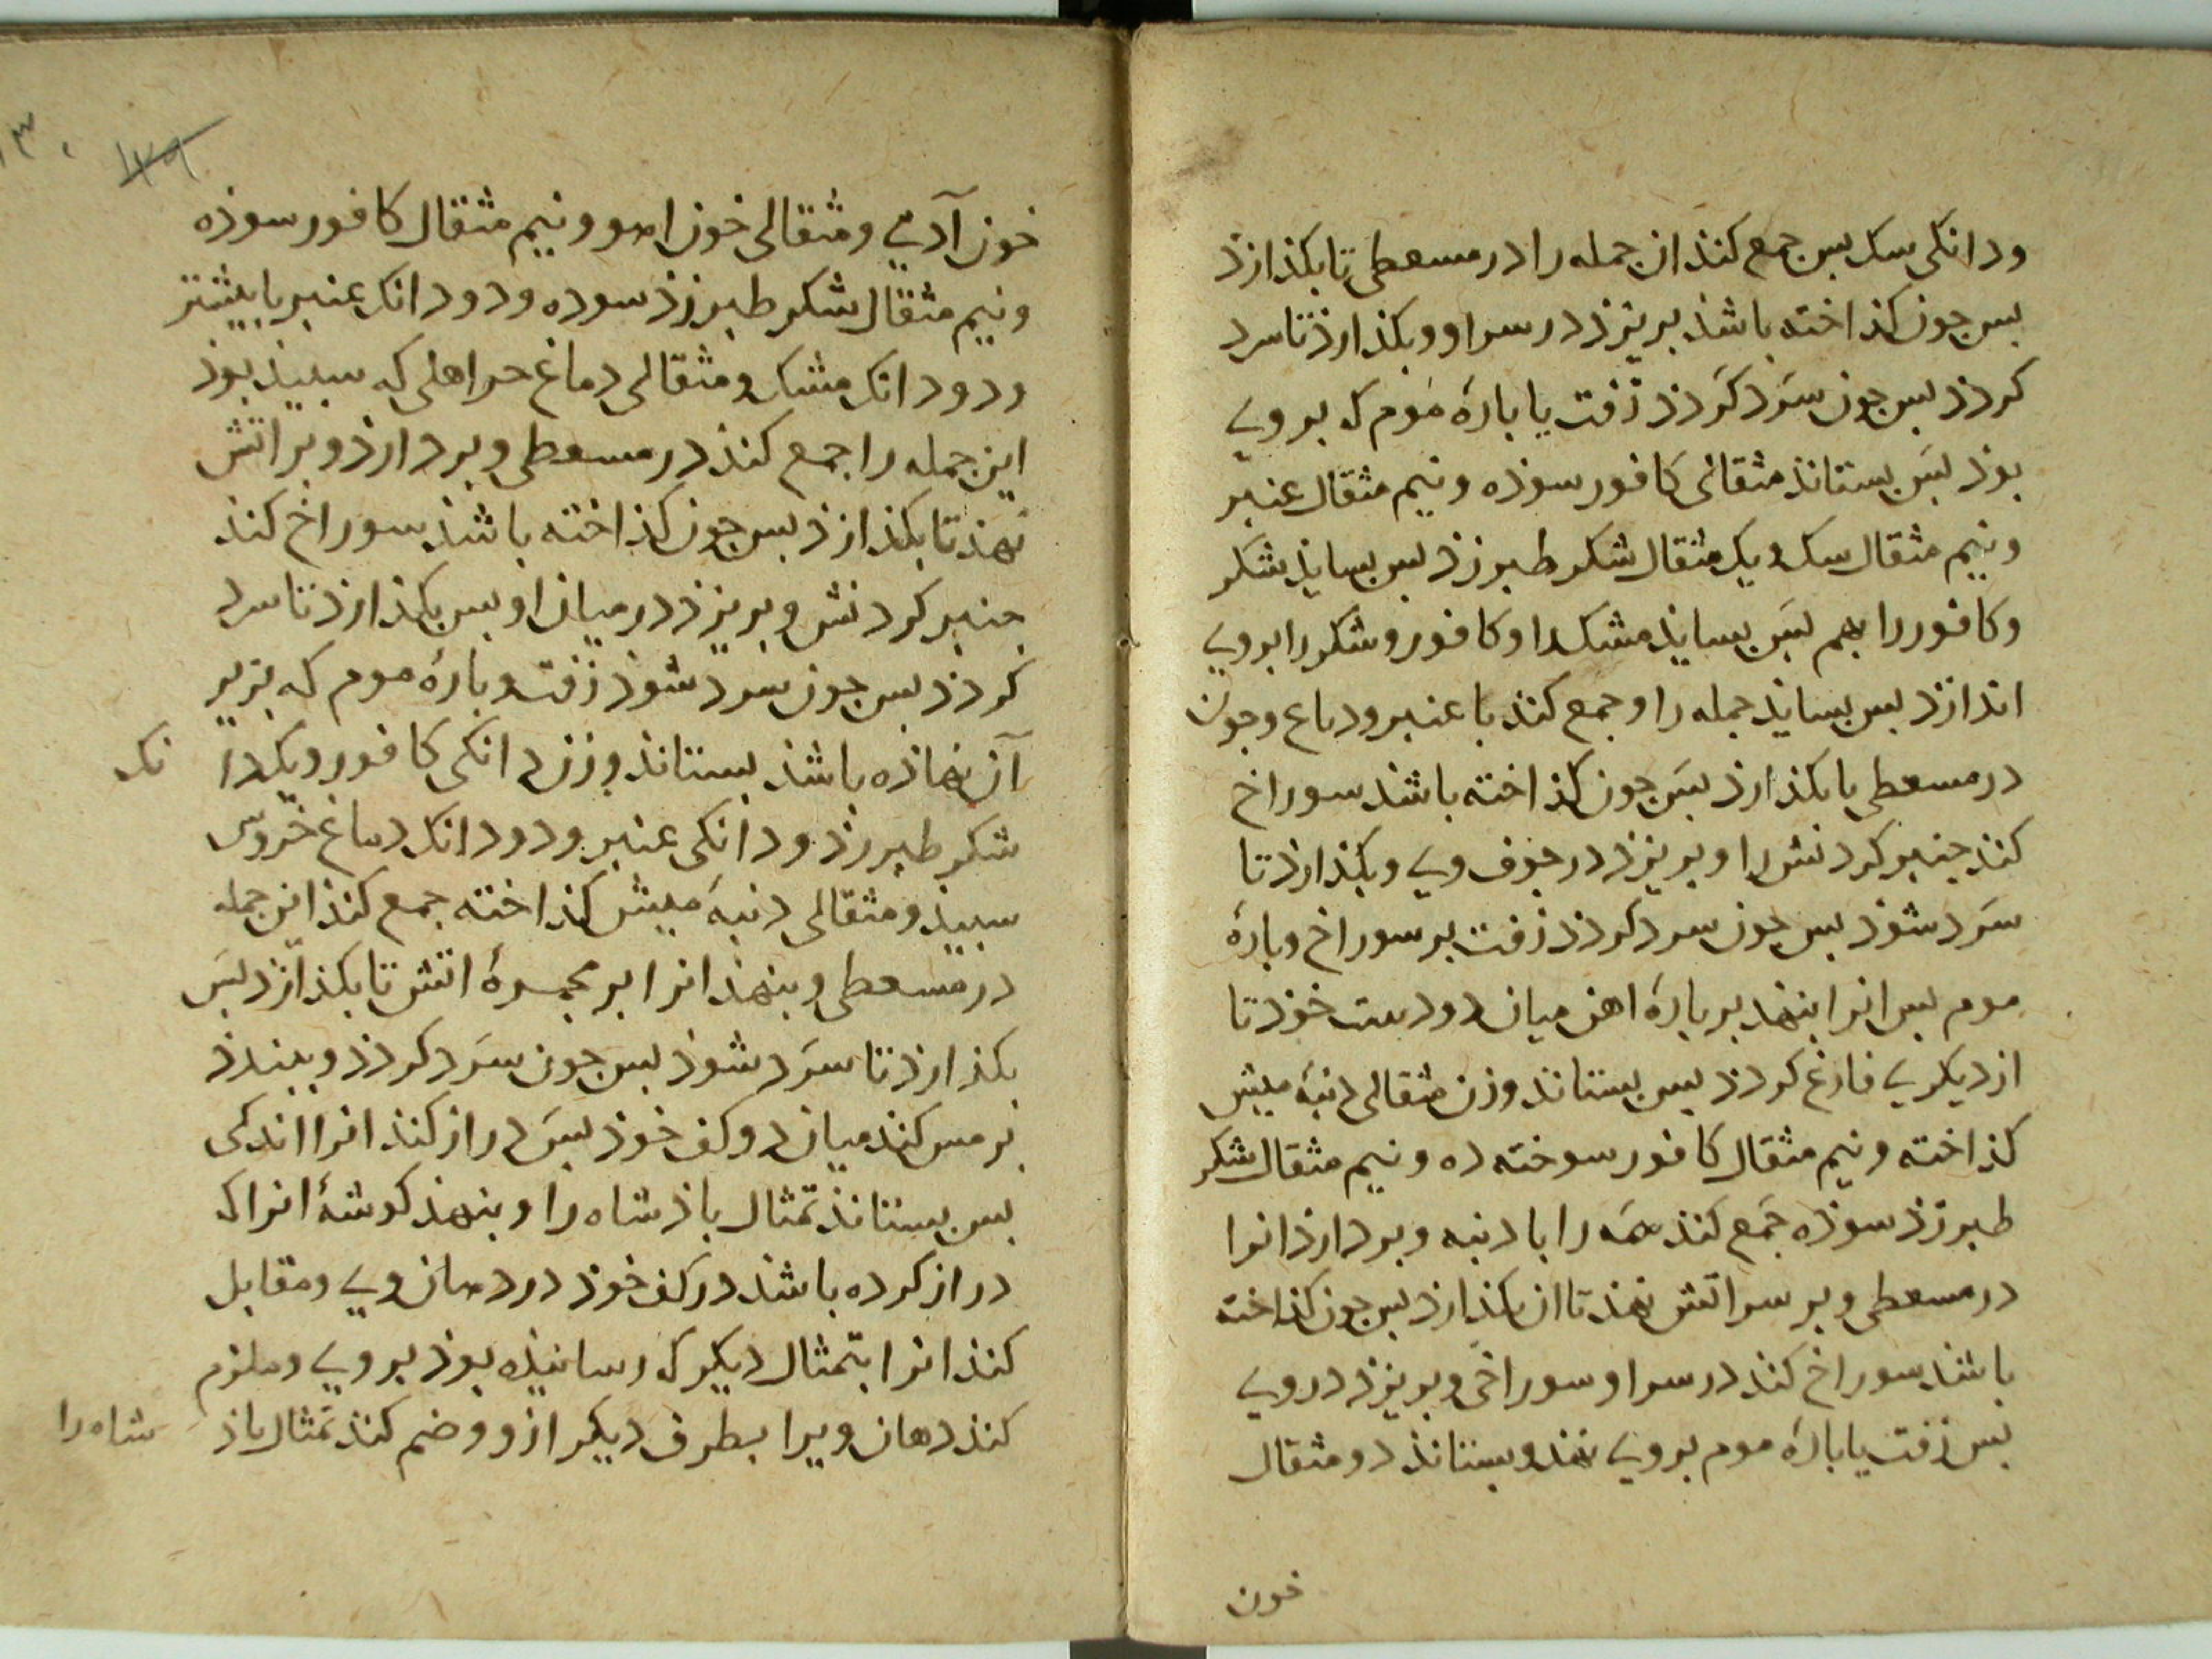 ودانکی سک بس جمع کنذ ان جمله را در مسعطی تا بکذازذ
بس جون کذاخته باشذ بریزذ در سر او وبکذارذ تا سرد
کردذ بس جون سَرد کَردذ زفت یا بارهٔ مَوم که بروی
بوذ بَس بستانذ مثقالی کافور سوذه ونیم مثقال عنبر
ونیم مثقال سک ویک مثقال شکر طبرزذ بس بسایذ شکر
وکافور را بهم بَس بسایذ مشک را وکافور وشکر را بروی
اندازذ بس بسایذ جمله را وجمع کنذ با عنبر ودماع وجون
در مسعطی یا بکذارذ بَس جون کذاخته باشذ سوراخ
کنذ جنبر کردنش را وبریزذ در جوف وی وبکذارذ تا
سَرد شوذ بس جون سرد کردذ زفت بر سوراخ وبارهٔ
موم بس انرا بنهذ بر بارهٔ اهن میان دو دست خوذ تا
از دیکری فارغ کردذ بس بستانذ وزن مثقالی دنبهٔ میش
کذاخته ونیم مثقال کافور سوخته ده ونیم مثقال شکر
طبرزذ سوذه جَمع کنذ همَه را با دنبه وبردارذ انرا
در مسعطی وبر سر اتش نهذ تا ان بکذازذ بس جون کذاخته
باشذ سوراخ کنذ در سر او سوراخی وبریزذ در وی
بس زفت یا بارهٔ موم بروی نهذ وبستانذ دو مثقال
خون
۱۳۰
۱۲۹
خون آدمی ومثقالی خون اهو ونیم مثقال کافور سوذه
ونیم مثقال شکر طبرزذ سوده ودو دانک عنبر با بیشتر
ودو دانک مشک ومثقالی دماغ که سبیذ بوذ
این جمله را جمع کنذ در مسعطی وبردارذ وبر اتش
نهذ تا بکذازذ بس جون کذاخته باشذ سوراخ کنذ
جنبر کردنش وبریزذ در میان او بس بکذارذ تا سرد
کردذ بس جون سرد شوذ زفت وبارهٔ موم که بزیر
آن نهاذه باشذ بستانذ وزن دانکی کافور ویکدا نک
شکر طبرزذ ودانکی عنبر ودو دانک دماغ خروس
سبیذ ومثقالی دنبهٔ میش کذاخته جمع کنذ این جمله
در مسعطی وبنهذ انرا بر مجمرهٔ اتش تا بکذازذ بَس
بکذارذ تا سَرد شوذ بس جون سَرد کردذ وببندذ
نرمس کنذ میان دو کف خوذ بَس دراز کنذ انرا اندکی
بس بستانذ تمثال باذشاه را وبنهذ کوشهٔ انرا که
دراز کرده باشذ در کف خوذ در دهان وی ومقابل
کنذ انرا بتمثال دیکر که رسانیذه بوذ بروی وملزم
کنذ دهان ویرا بطرف دیکر ازو وضم کنذ تمثال باذ شاه را